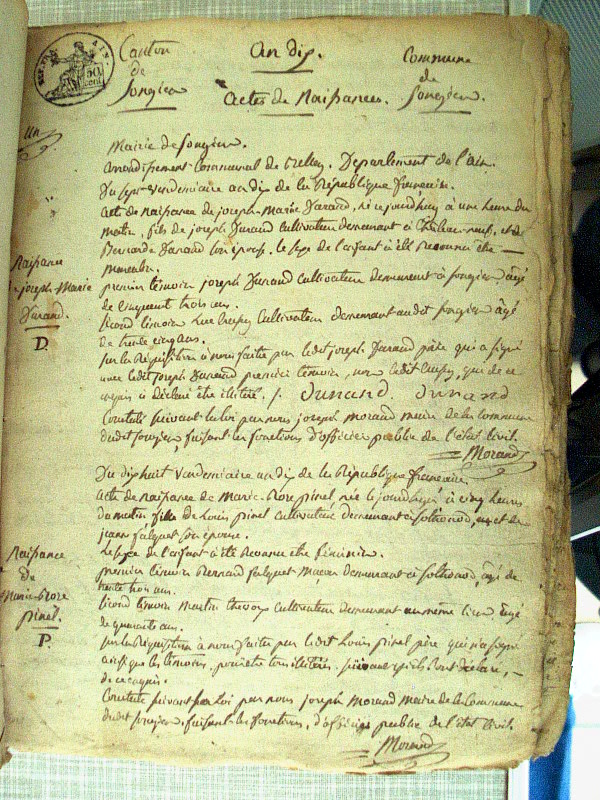 AIN.
50 cent
Canton de Songieu
an dix.
Commune de Songieu.
actes de Naissances.
Un
Mairie de Songieu.
Arrondissement Communal de Belley. Département de l'ain.
Du sept vendemiaire an dix de la République française.
acte de naissance de joseph-Marie Dunand, né ce jourdhuy à une heure du
matin, fils de joseph Dunand cultivateur demeurant à Chateau-neuf, et de
Bernarde Dunand son épouse. le sexe de l'enfant à été reconnu être
masculin.
Naissance
joseph Marie
Dunand.
D.
premier témoin joseph Dunand cultivateur demeurant à songieu, âgé
de cinquent trois ans.
second témoin cultivateur demeurant audit songieu âgé
de trente cinq ans.
sur la réquisition à nous faite par ledit joseph Dunand père qui a signé
avec ledit joseph Dunand premier témoin, non ledit qui de ce
enquis à déclaré être illitéré. Dunand Dunand
Constaté suivant la loi par nous joseph Morand maire de la commune
dudit songieu, faisant les fonctions d'officier public de l'état civil.
Morand
Du dix huit vendemiaire an dix de la République française.
acte de naissance de Marie-Rose pinel née le jourdhuy à cinq heures
du matin fille de Louis pinel cultivateur demeurant à sothonod, et de
jeanne falquet son épouse.
le sexe de l'enfant à été reconnu être féminin.
Naissance
de
Marie-Rose
pinel.
P.
premier témoin Bernard falquet Maçon demeurant à sothonod, âgé de
trente trois ans.
second témoin Martin cultivateur demeurant au même lieu âgé
de quarante ans.
sur la réquisition à nous faite par ledit Louis pinel père qui n'a signé
ainsi que les témoins, pour être tous illitérés, ont déclaré,
de ce enquis.
Constaté suivant la Loi par nous joseph Morand Maire de la Commune
dudit songieu faisant les fonctions, d'officier public de l'état civil.
Morand